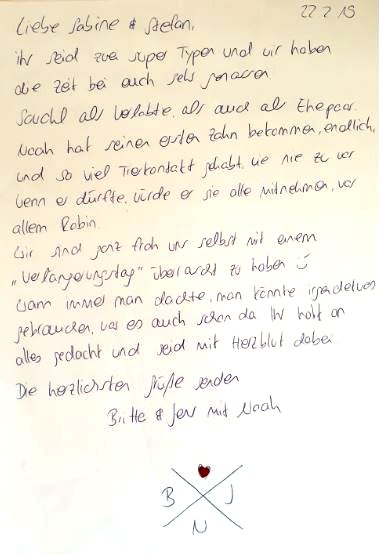 22.2.19
Liebe Sabine & Stefan,
ihr seid zwei super Typen und wir haben
die Zeit bei euch sehr genossen
Sowohl als Verlobte, als auch als Ehepaar.
Noah hat seinen ersten Zahn bekommen, endlich,
und so viel Tierkontakt gehabt, wie nie zu vor
Wenn er dürfte, würde er sie alle mitnehmen, vor
allem Robin.
Wir sind ganz froh uns selbst mit einem
„Verlängerungstag" überrascht zu haben
Wann immer man dachte, man könnte irgendetwas
gebrauchen, war es auch schon da Ihr habt an
alles gedacht und seid mit Herzblut dabei.
Die herzlichsten Grüße senden
Britte & Jens mit Noah
B J
N